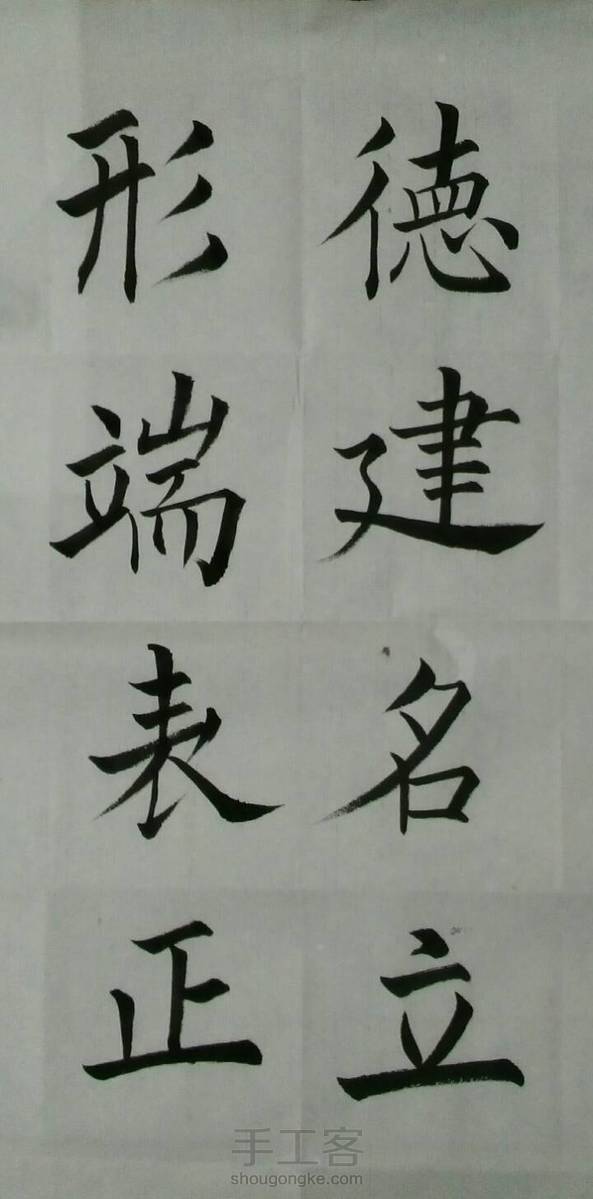 德建名立
形端表正
手工客
shougongke.com